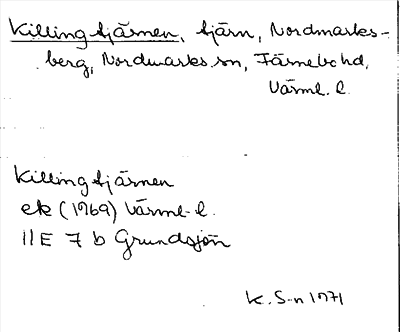 Killingtjärnen, tjärn, Nordmarks-
berg, Nordmarks sn, Färnebo hd,
Värml. l.
Killingtjärnen
ek (1969) Värml. l.
11E 7 b Grundsjön
K. S-n 1971